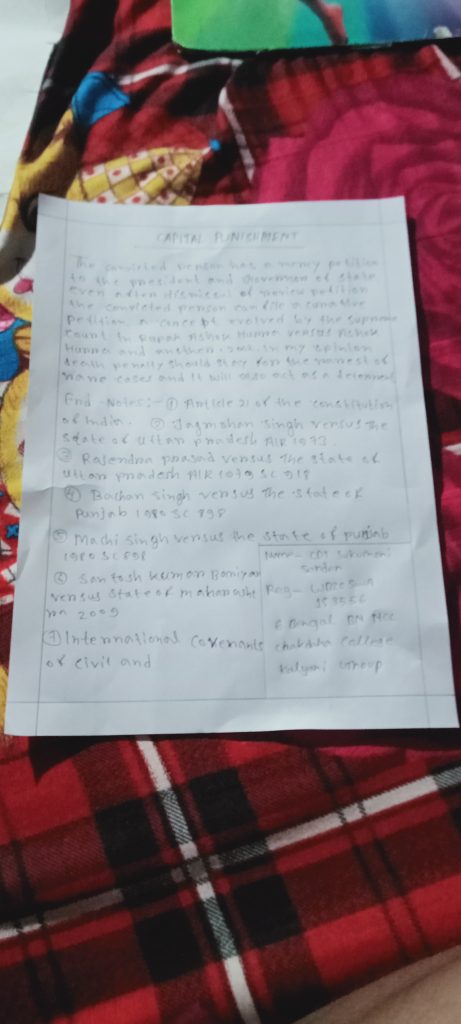 CAPITAL PUNISHMENT
The convicted person has a mercy petition
to the president and Governor of state
even after dismissal of review petition
the convicted person can file a curative
petition, a concept evolved by the supreme
count in Rupar Ashok Hurra versus Ashok
Hurra and another 2002. in my opinion
death penalty should stay for the rarest of
rare cases and it will also act as a deterrent
End Notes:- ① Article 21 of the constitution
of India. ② Jagmohan Singh versus the
state of uttar pradesh AIR 1973.
③ Rajendra prasad versus The state of
uttar pradesh AIR 1979 SC 916
④ Bachan singh versus The state of
Punjab 1980 SC 898
⑤ Machi singh versus the state of punjab
1980 SC 898
⑥ Santosh kumar Bariyar
versus State of maharasht
ra 2009
⑦ International Covenants
of civil and
Name - CDT Sukumani
Reg -
153556
6 Bengal BN NCC
chakdaha College
Kalyani Group